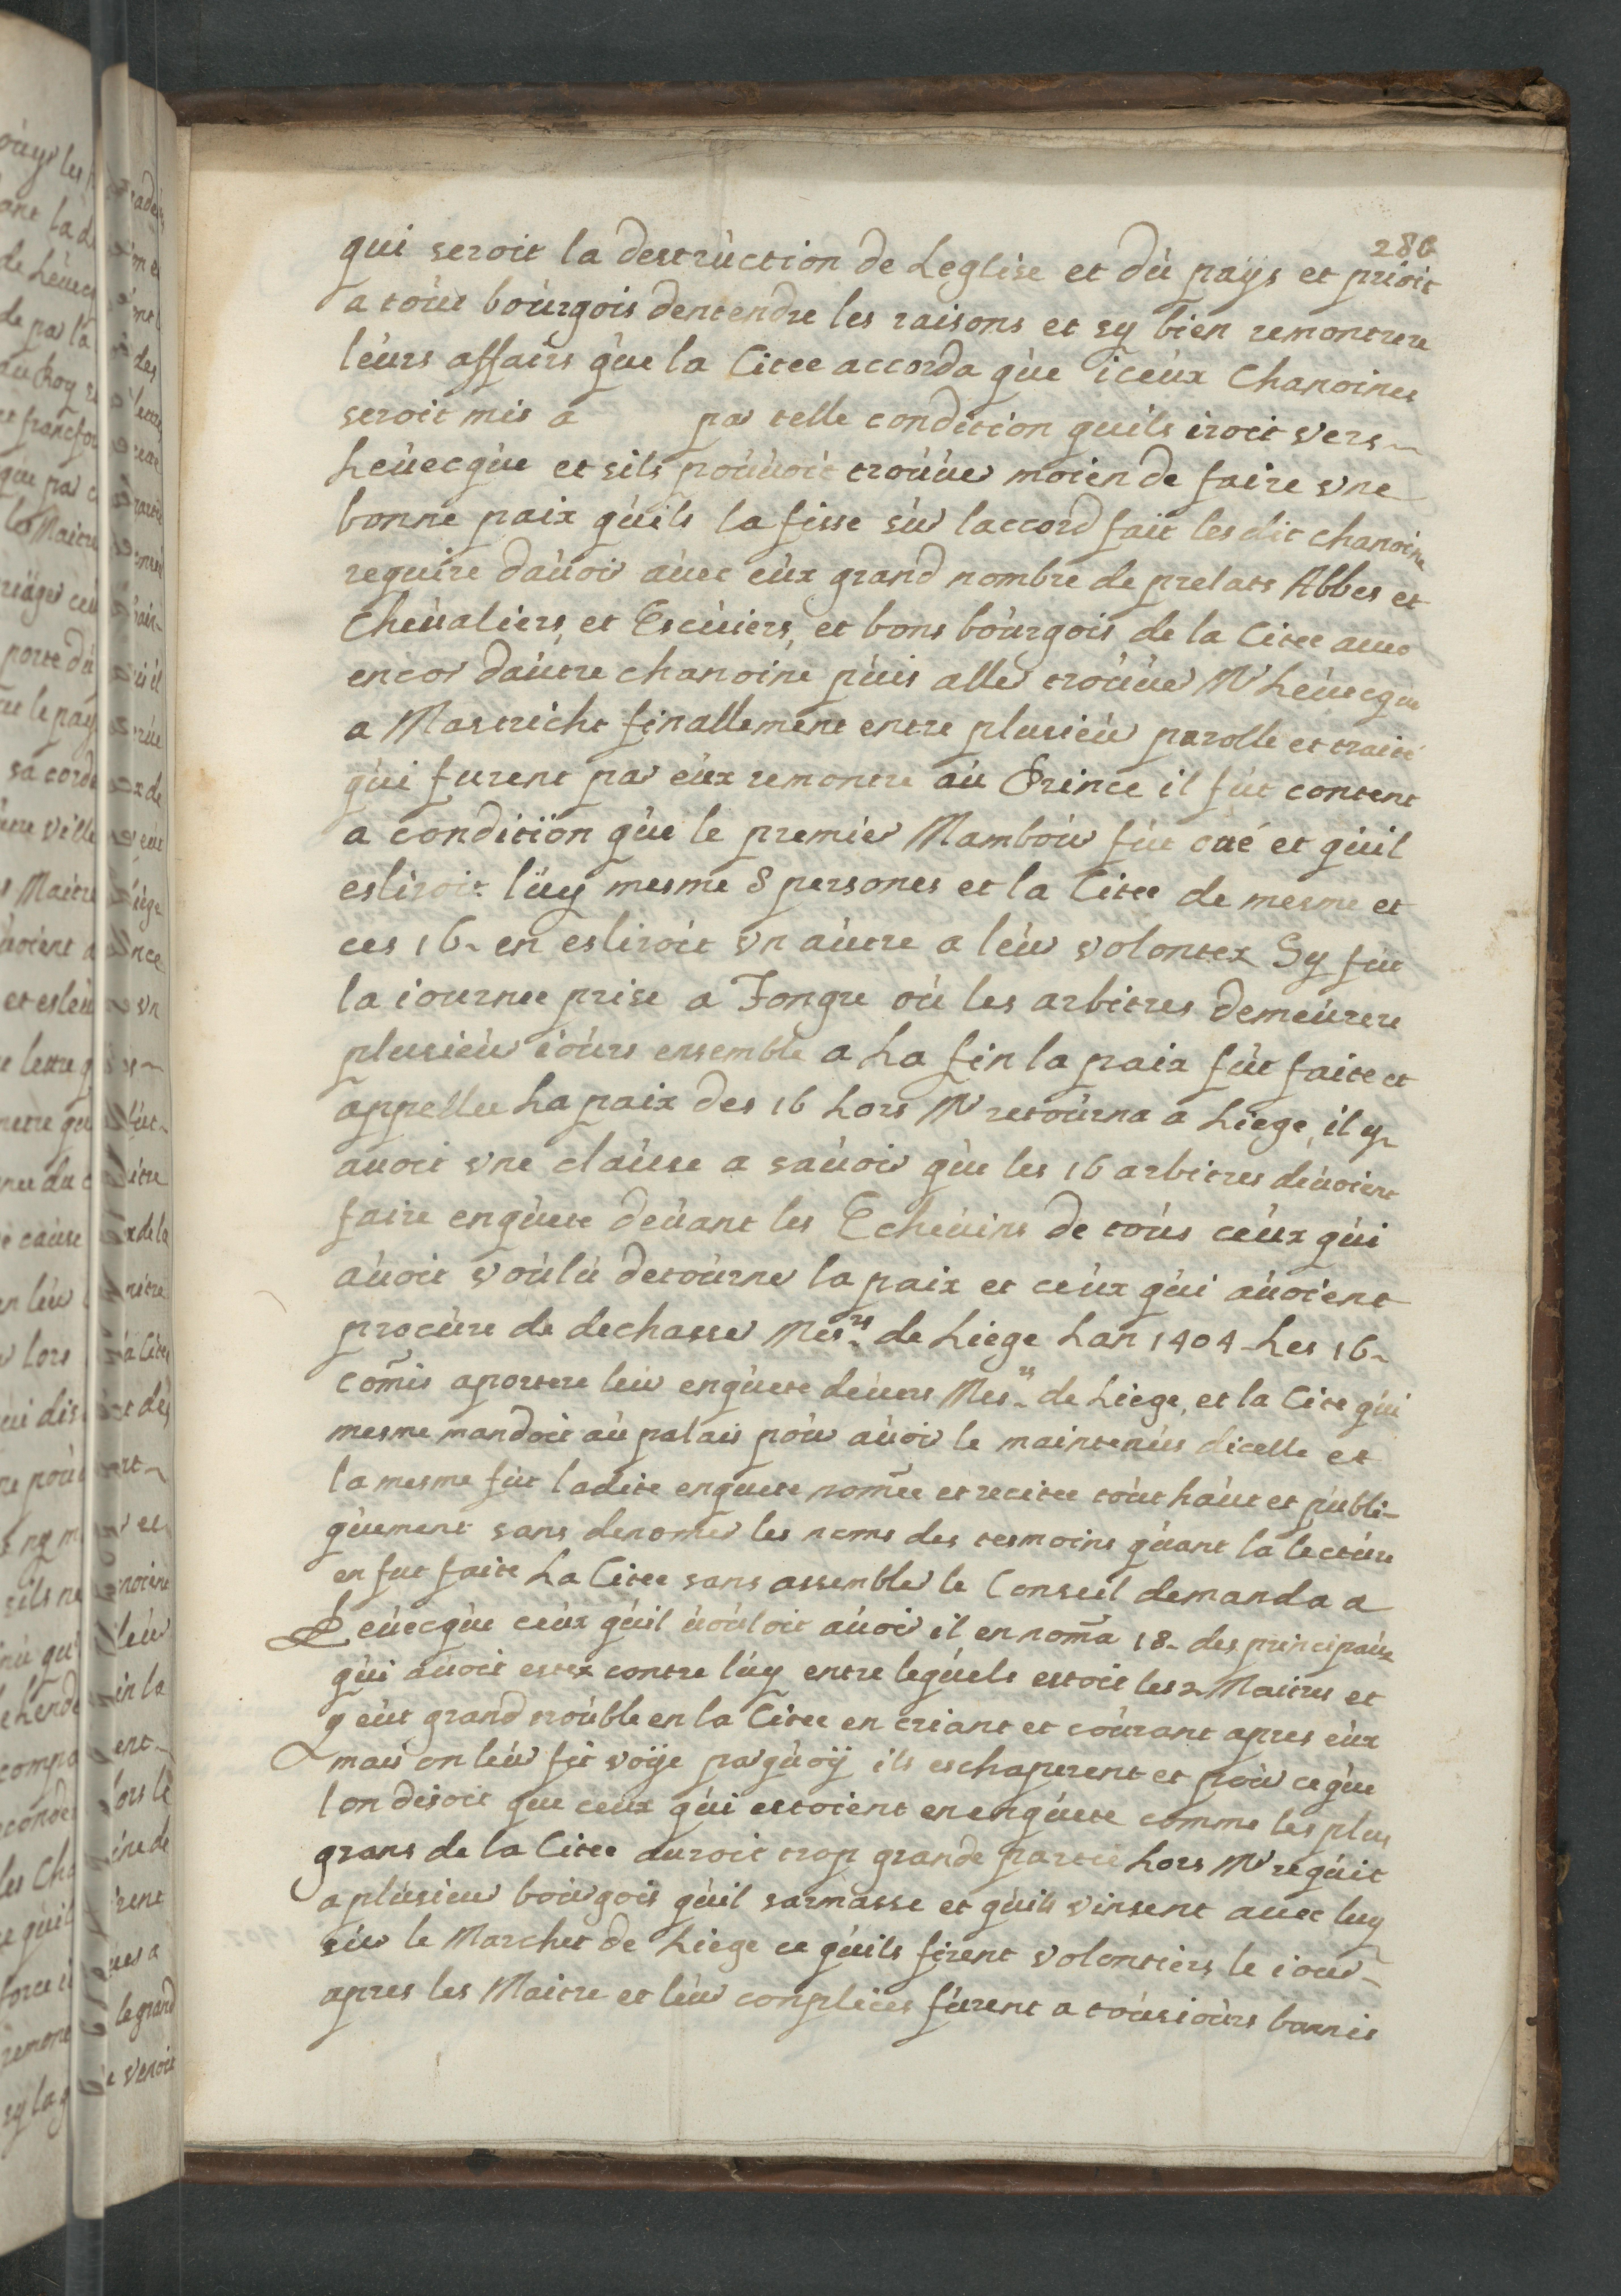 286
qui seroit la destruction de Leglise et du pays et prioit
a tour bourgois dentendre les raisons et sy bien remontrere
leurs affairs que la Citee accorda que iceux Chanoines
seroit mis a par telle condition quils iroit vers
Leuecque et sils pouuoit trouuer moien de faire vne
bonne paix quils la fisse sur laccord fait les dit chanoine
require dauoir auec eux grand nombre de prelats Abbes et
Cheualiers, et Escuiers, et bons bourgois de la Citee auec
encor dautre chanoine puis aller trouuer Mr Leuecque
a Mastricht finallement entre plusieur parolle et traité
qui furent par eux remontre au Prince il fut content
a condition que le premier Mambour fut oté et quil
esliroit luy mesme 8 persones et la Citee de mesme et
ces 16 en esliroit vn autre a leur volontez Sy fut
la iournee prise a Tongre où les arbitres demeurere
plusieur iours ensemble a La fin la paix fut faite et
appellee La paix des 16 Lors Mr retourna a Liege, il y
auoit vne clause a sauoir que les 16 arbitres deuoient
faire enquete deuant les Echeuins de tous ceux qui
auoit voulu detourner la paix et ceux qui auoient
procure de dechasser Mesrs de Liege Lan 1404 Les 16
comis aportere leur enquete deuers Mesrs de Liege, et la Cite qui
mesme mandoit au palais pour auoir le maintenus dicelle et
la mesme fut ladite enquete nomee et recitee tout haut et publi-
quement sans denomer les noms des tesmoins quant la lecture
en fut faite La Citee sans assembler le Conseil demanda a
Leuecque ceux quil uouloit auoir il en noma 18 des principaux
qui auoit estez contre luy entre lequels estoit les 2 Maitres et
y eut grand trouble en la Citee en criant et courant apres eux
mais on leur fit voije parquoij ils eschaperent et pour ce que
lon disoit que ceux qui estoient en enquete comme les plus
grans de la Citee auroit trop grande partie Lors Mr requit
a plusieur bourgois quil sarmasse et quils vinsent auec luy
sur le Marchet de Liege ce quils firent volontiers le iour
apres les Maitre et leur conplices furent a tousiours bannis